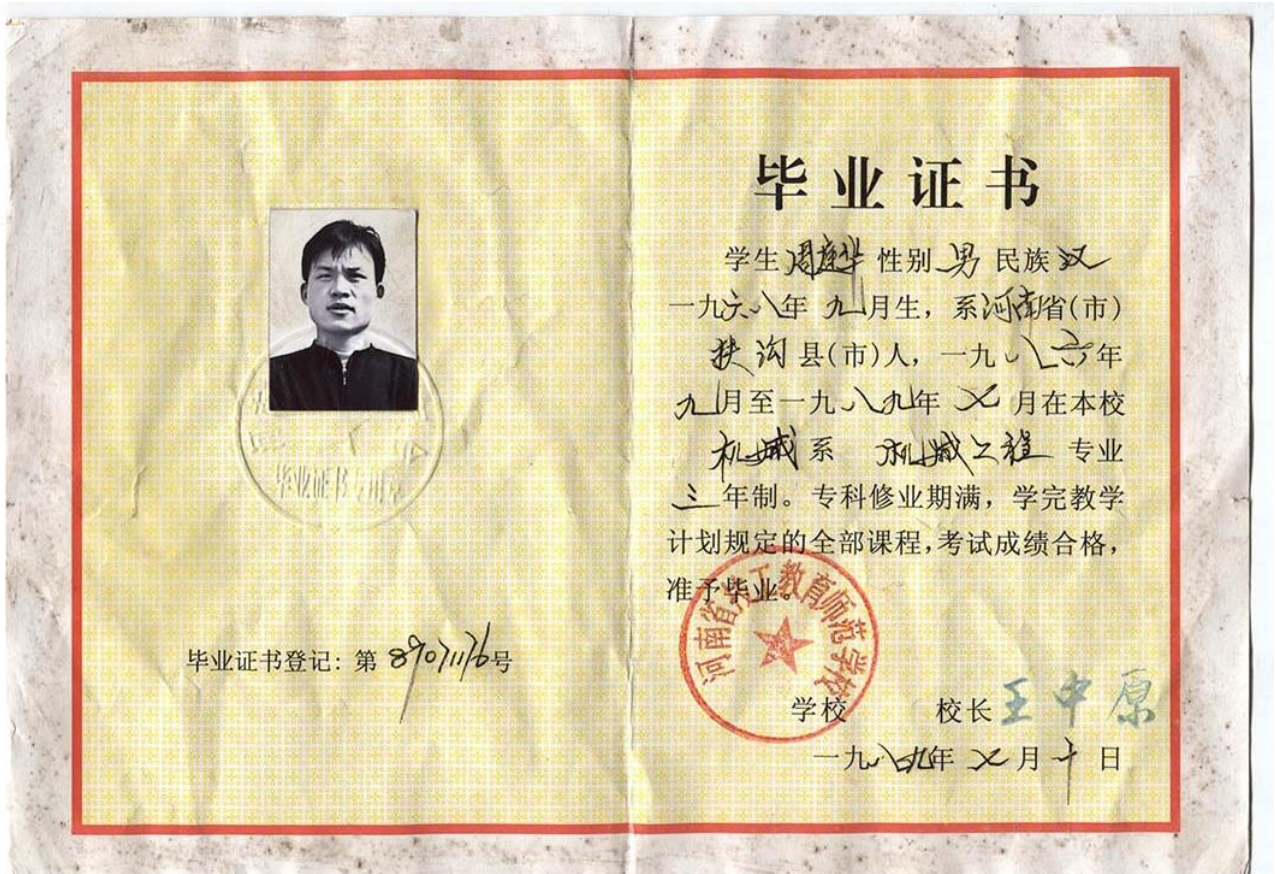 毕业证书登记：第89071176号
毕业证书专用章
毕业证书
学生周建华性别男民族汉
一九六八年九月生，系河南省(市)
扶沟县(市)人，一九八六年
九月至一九八九年七月在本校
机械系机械工程专业
三年制。专科修业期满，学完教学
计划规定的全部课程，考试成绩合格，
准予毕业。
河南省技工教育师范学校
学校 校长王中原
一九八九年七月十日